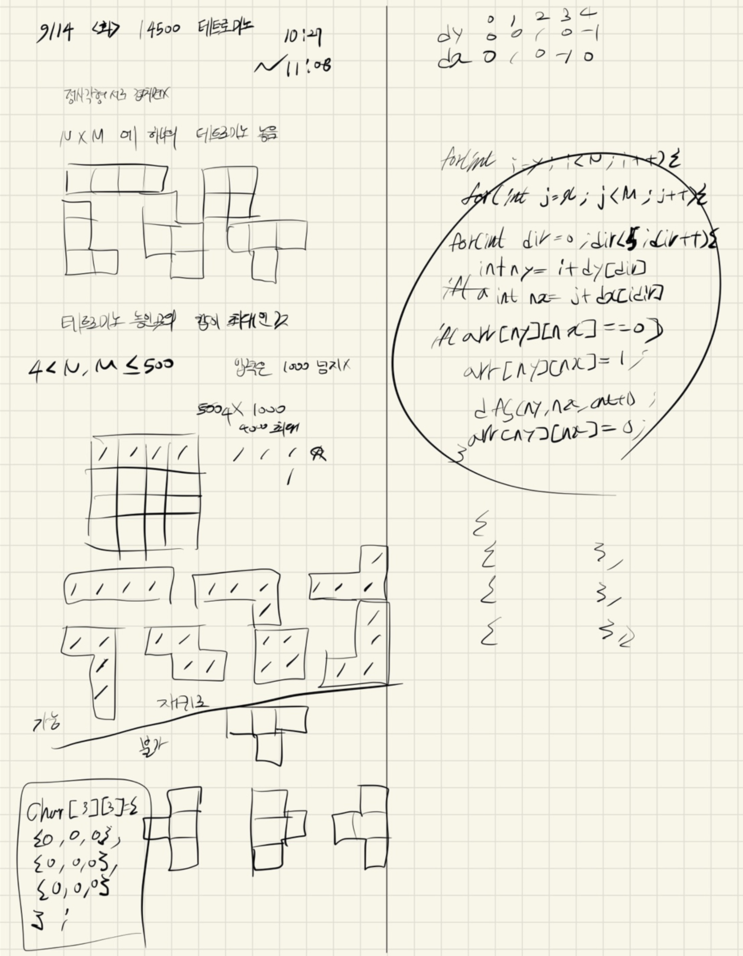 9/14 <화> 14500 테트로미노
10:27
~ 11:08
정사각형 서로 겹치면X
N X M 에 하나의 테트로미노 놓음
테트로미노 놓인 곳의 합이 최대인 값
4 < N, M ≤ 500
입력은 1000 넘지X
4 X 1000
4000 최대
가능
재귀로
불가
Char[3][3]={
{0,0,0},
{0,0,0},
{0,0,0}
};
0 1 2 3 4
dy 0 0 1 0 -1
dx 0 1 0 -1 0
for(int i=y; i<N; i++){
for(int j=x; j<M; j++){
for(int dir=0; dir<5; dir++){
int ny= i+dy[dir]
int nx= j+dx[dir]
if( arr[ny][nx]==0)
arr[ny][nx]=1;
dfs(ny,nx,cnt+1);
arr[ny][nx]=0;
}
{
{ },
{ },
{ },